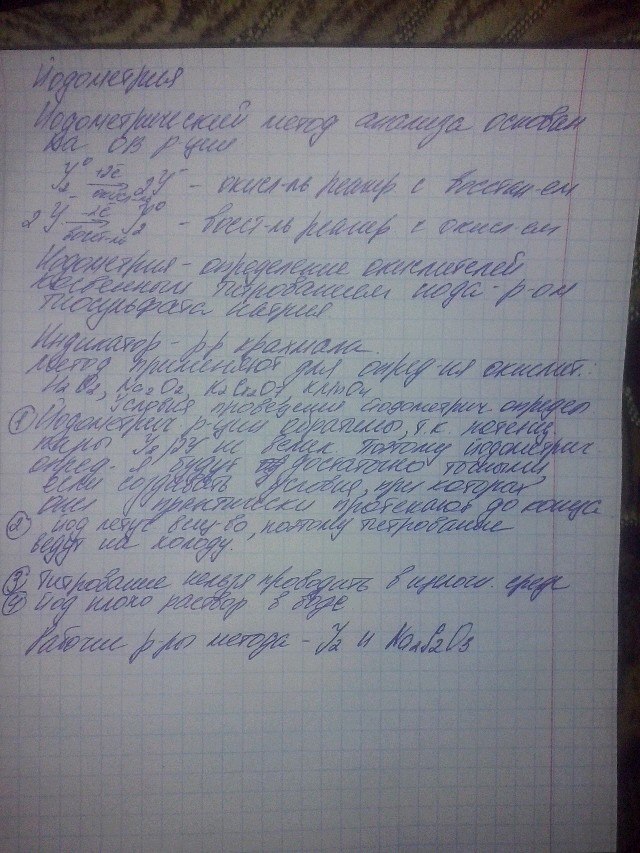 Йодометрия
Йодометрический метод анализа основан
на ОВ р-ции
У₂⁰ +2ē → окисл-ль 2У⁻ - окисл-ль реагир с восстан-ем
2У⁻ -2ē → восст-ль У₂⁰ - восст-ль реагир с окисл-ем
Йодометрия - определение окислителей
косвенным титрованием йода р-ом
тиосульфата натрия
Индикатор - р-р крахмала.
Метод применяют для опред-ия окислит.
H₂O₂, Na₂O₂, K₂Cr₂O₇, KMnO₄
Условия проведения йодометрич. определ
① Йодометрич р-ции обратимы, т.к. потенц.
пары У₂/2У⁻ не велик поэтому йодометрич
опред-я будут достаточно точными
если создавать условия, при которых
они практически протекают до конца
② Йод летуч. вещ-во, поэтому титрование
ведут на холоду.
③ Титрование нельзя проводить в щелочн. среде
④ Йод плохо раствор в воде
Рабочие р-ры метода - У₂ и Na₂S₂O₃